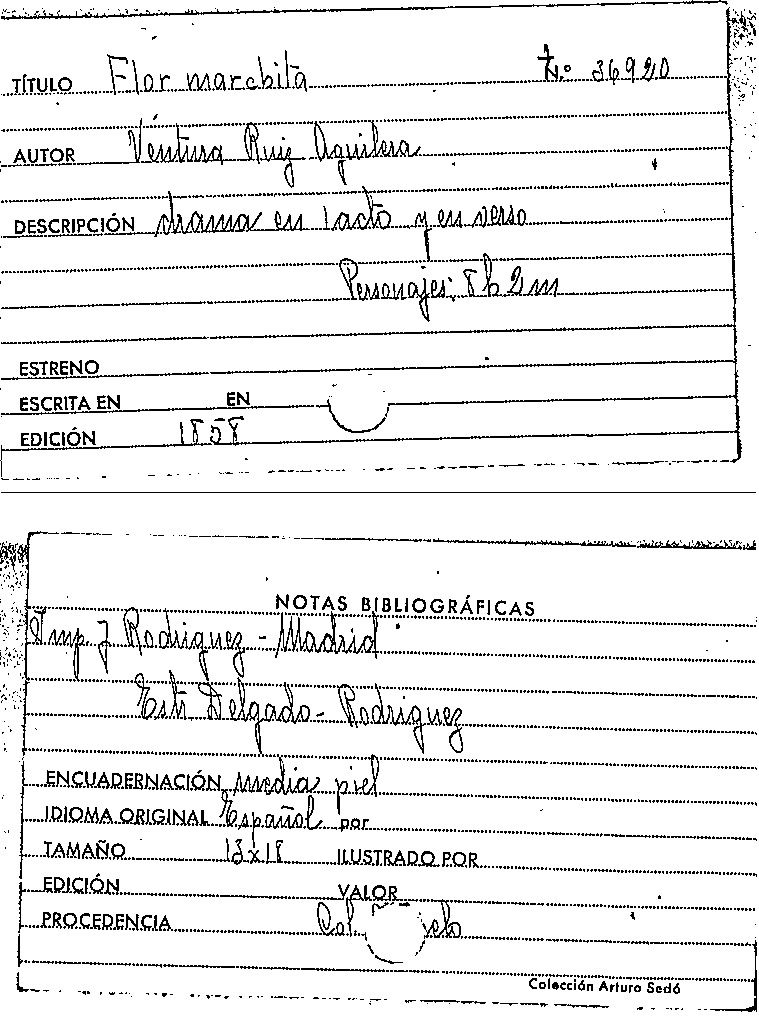 TÍTULO Flor marchita N.º 36920
AUTOR Ventura Ruiz Aguilera
DESCRIPCIÓN drama en 1 acto y en verso
Personajes: 8 h 2 m
ESTRENO
ESCRITA EN EN
EDICIÓN 1858
NOTAS BIBLIOGRÁFICAS
Imp. J Rodriguez - Madrid
Estr Delgado - Rodriguez
ENCUADERNACIÓN media piel
IDIOMA ORIGINAL Español por
TAMAÑO 13x18 ILUSTRADO POR
EDICIÓN VALOR
PROCEDENCIA Col.
Colección Arturo Sedó